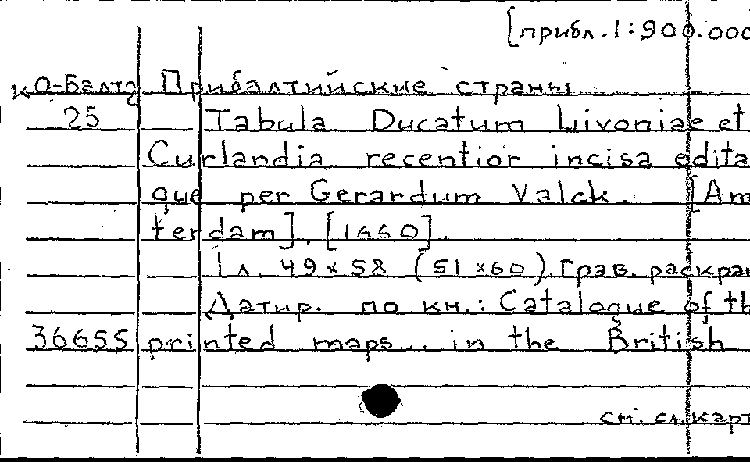 [прибл. 1:900.000
К О-Балт2 Прибалтийские страны
25 Tabula Ducatum Livoniae et
Curlandia recentior incisa edita
que per Gerardum Valck. [Am
terdam], [1660].
1 л. 49×58 (51×60). Грав. раскра
Датир. по кн.: Catalogue of th
36655 printed maps.. in the British
см. сл. карт